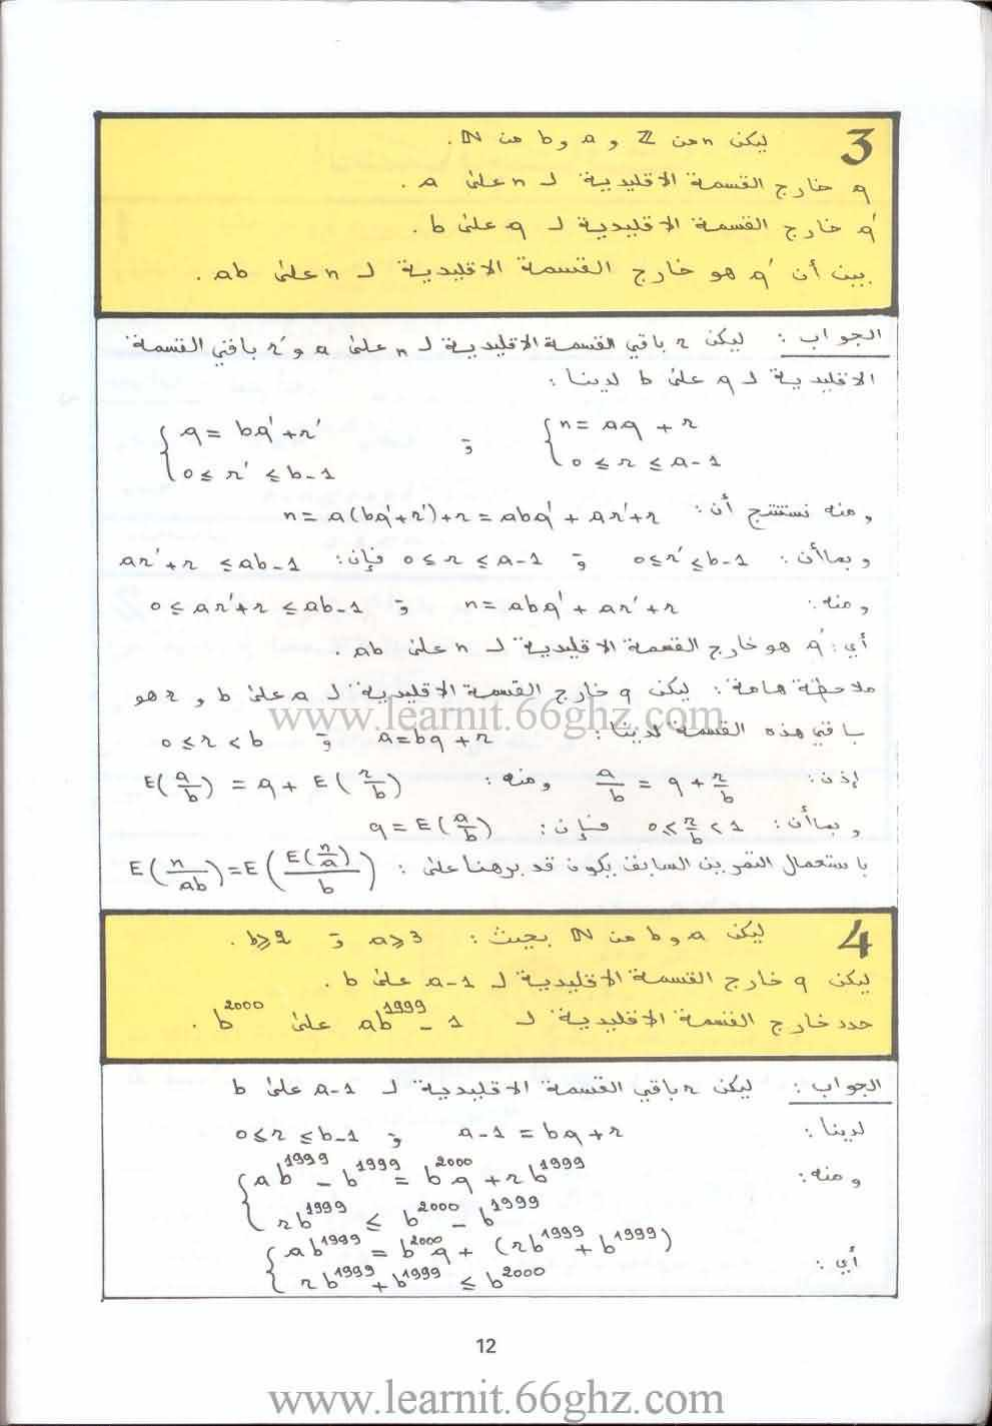 3
ليكن n من ℤ و a و b من ℕ.
q خارج القسمة الاقليدية لـ n على a.
q' خارج القسمة الاقليدية لـ q على b.
بين أن q' هو خارج القسمة الاقليدية لـ n على ab.
الجواب : ليكن r باقي القسمة الاقليدية لـ n على a و r' باقي القسمة
الاقليدية لـ q على b لدينا :
{ n = aq + r ; 0 ≤ r ≤ a-1 و { q = bq' + r' ; 0 ≤ r' ≤ b-1
ومنه نستنتج أن : n = a(bq'+r')+r = abq' + ar'+r
وبما أن : 0≤r'≤b-1 و 0≤r≤a-1 فإن : ar'+r ≤ab-1
ومنه : n = abq' + ar'+r و 0≤ ar'+r ≤ab-1
أي : q' هو خارج القسمة الاقليدية لـ n على ab.
ملاحظة هامة : ليكن q خارج القسمة الاقليدية لـ a على b و r هو
باقي هذه القسمة لدينا : a=bq+r و 0≤r<b
إذن : a/b = q + r/b ومنه : E(a/b) = q + E(r/b)
وبما أن : 0≤ r/b <1 فإن : q = E(a/b)
باستعمال التمرين السابق يكون قد برهنا على : E(n/ab)=E(E(n/a)/b)
4
ليكن a و b من ℕ بحيث : a≥3 و b≥2.
ليكن q خارج القسمة الاقليدية لـ a-1 على b.
حدد خارج القسمة الاقليدية لـ ab^1999 - 1 على b^2000.
الجواب : ليكن r باقي القسمة الاقليدية لـ a-1 على b
لدينا : a-1 = bq+r و 0≤r≤b-1
ومنه : { ab^1999 - b^1999 = b^2000 q + rb^1999
rb^1999 ≤ b^2000 - b^1999
أي : { ab^1999 = b^2000 q + (rb^1999 + b^1999)
rb^1999 + b^1999 ≤ b^2000
12
www.learnit.66ghz.com
www.learnit.66ghz.com